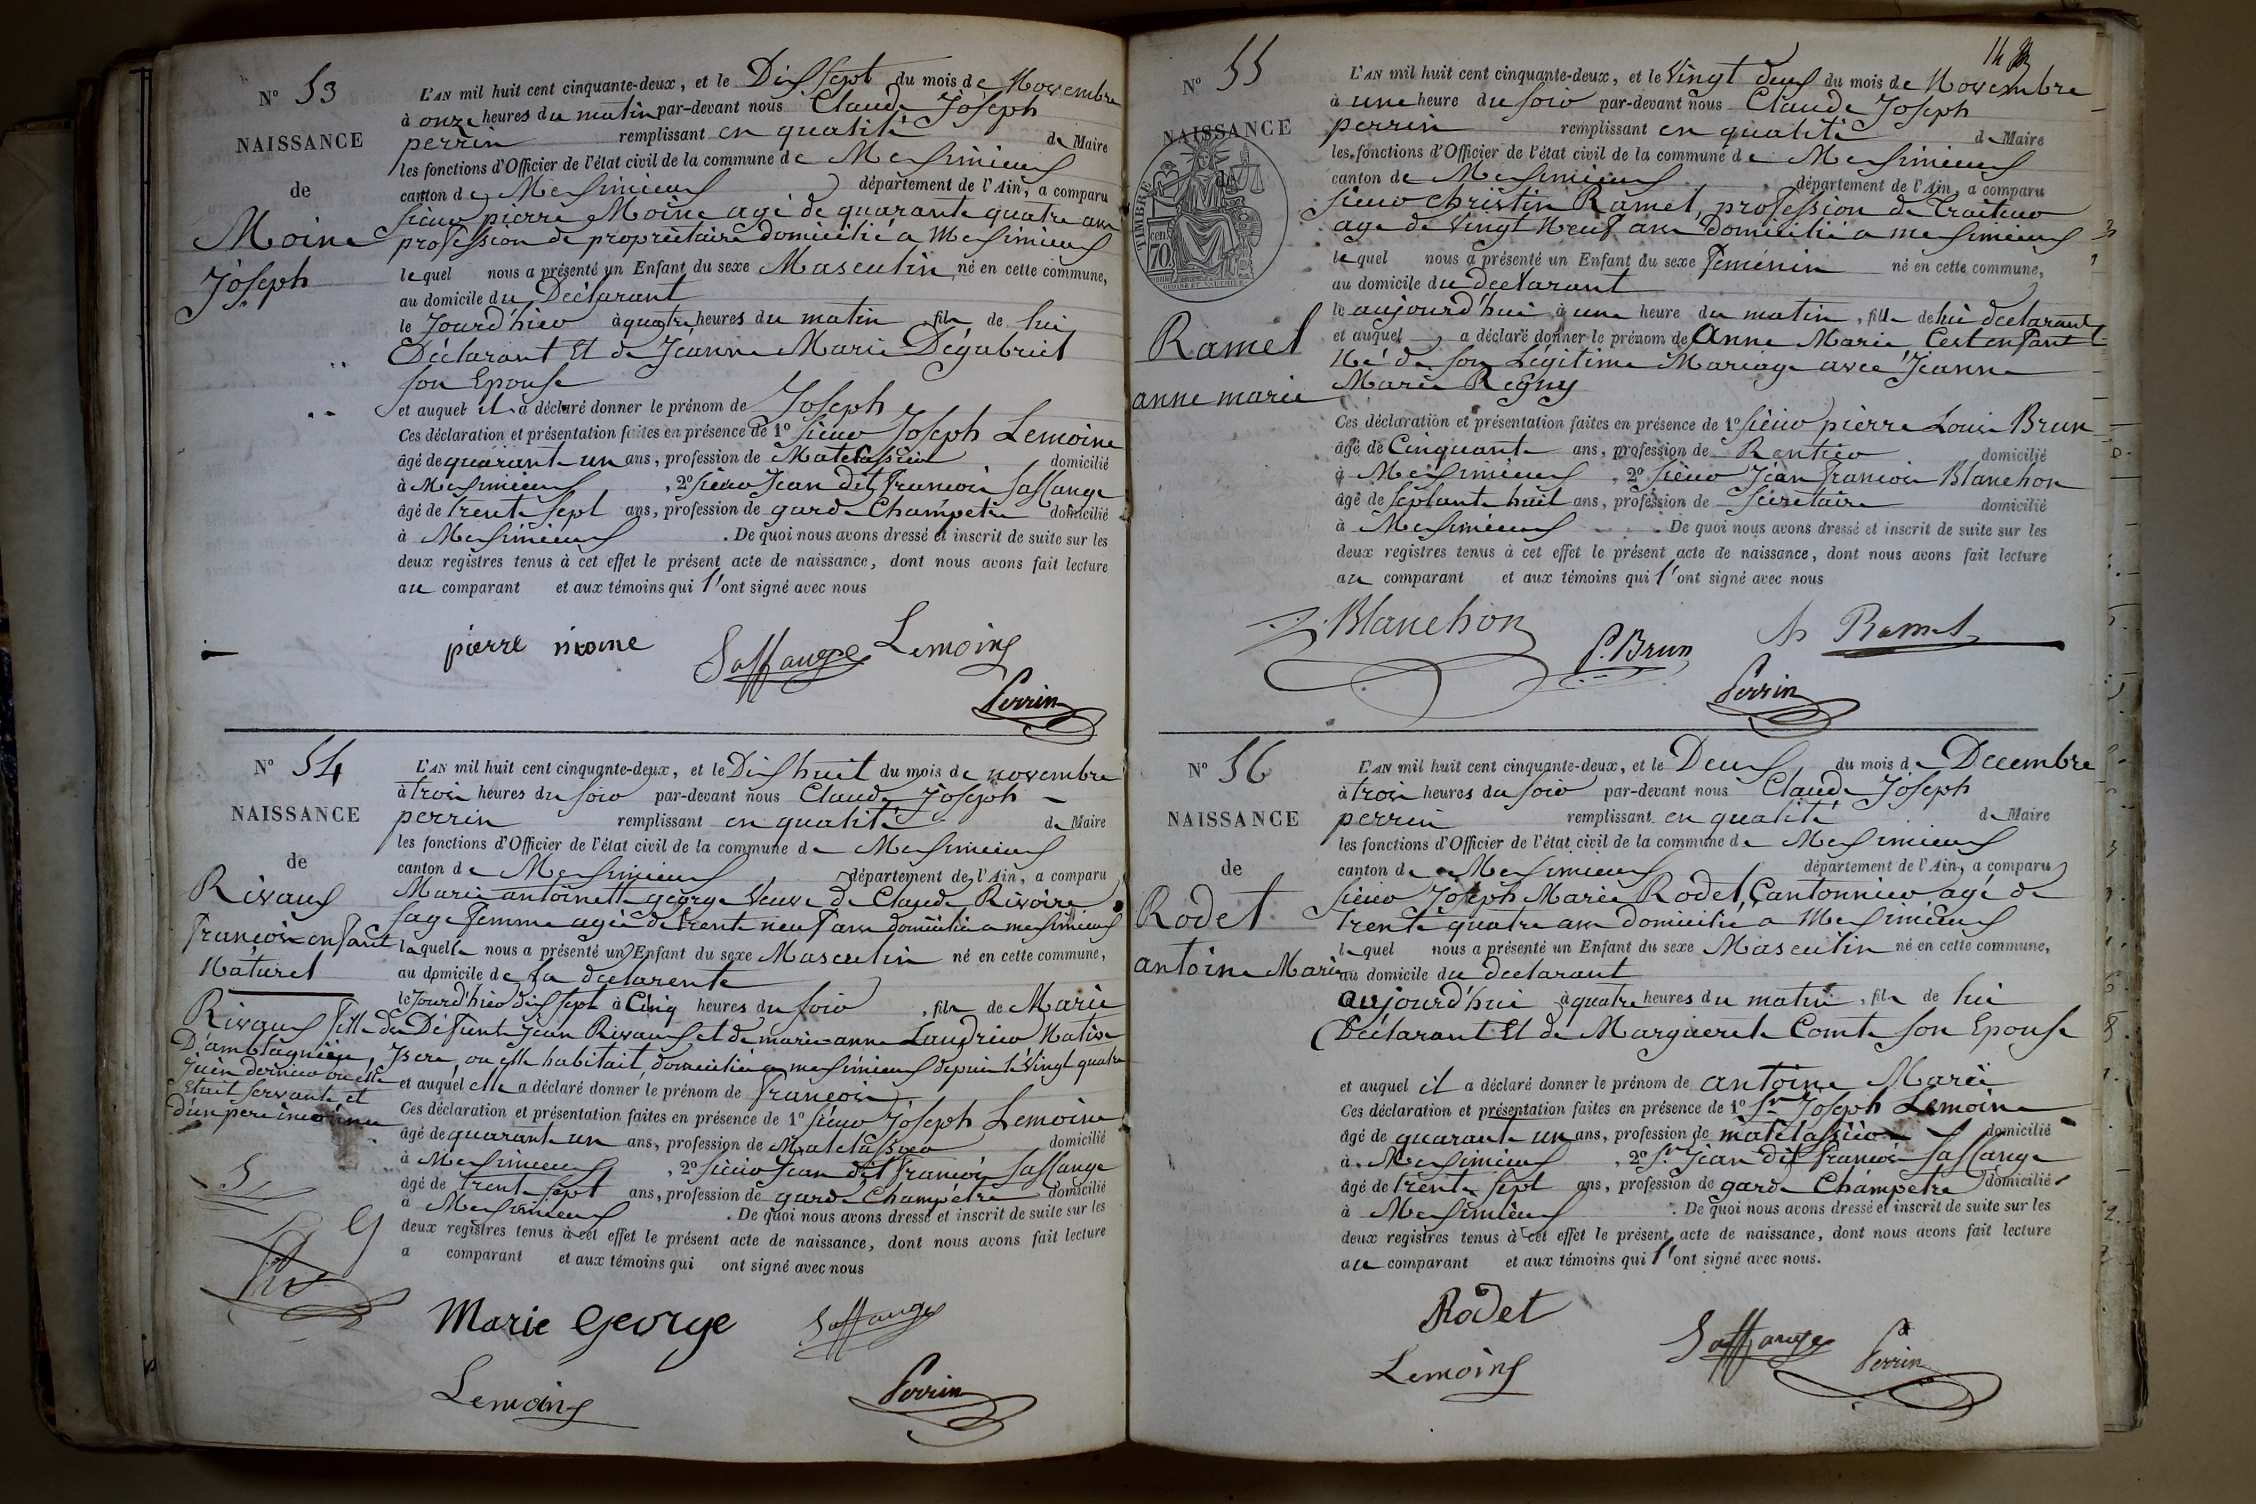 N° 53
NAISSANCE
de
Moine
Joseph
L'AN mil huit cent cinquante-deux, et le Dix Sept du mois de Novembre
à onze heures du matin par-devant nous Claude Joseph
perrin remplissant en qualité de Maire
les fonctions d'Officier de l'état civil de la commune de Meximieux
canton de Meximieux département de l'Ain, a comparu
sieur pierre Moine agé de quarante quatre ans
profession de propriétaire domicilié a Meximieux
lequel nous a présenté un Enfant du sexe Masculin né en cette commune,
au domicile du Déclarant
le Jourd'hier à quatre heures du matin, fils de lui
Déclarant Et de Jeanne Marie Dégabriel
son Epouse
et auquel il a déclaré donner le prénom de Joseph
Ces déclaration et présentation faites en présence de 1° sieur Joseph Lemoine
âgé de quarante un ans, profession de Matelassier domicilié
à Meximieux, 2° sieur Jean dit francois Saffange
âgé de trente sept ans, profession de garde Champetre domicilié
à Meximieux. De quoi nous avons dressé et inscrit de suite sur les
deux registres tenus à cet effet le présent acte de naissance, dont nous avons fait lecture
au comparant et aux témoins qui l'ont signé avec nous
pierre moine Saffange Lemoine
Perrin
N° 54
NAISSANCE
de
Rivaux
francois enfant
Naturel
L'AN mil huit cent cinquante-deux, et le Dix huit du mois de novembre
à trois heures du soir par-devant nous Claude Joseph
perrin remplissant en qualité de Maire
les fonctions d'Officier de l'état civil de la commune de Meximieux
canton de Meximieux département de l'Ain, a comparu
Marie antoinette george veuve de Claude Rivoire
sage femme agée de trente neuf ans domiciliée a meximieux
laquelle nous a présenté un Enfant du sexe Masculin né en cette commune,
au domicile de la declarente
le Jourd'hier dix sept à Cinq heures du soir, fils de Marie
Rivaux fille de Défunt Jean Rivaux et de marie-anne Laudrieu Native
D'amblagnieu, Isere, ou elle habitait, domiciliée a meximieux depuis le vingt quatre
Juin dernier ou elle
était servante et
d'un pere inconnu
et auquel elle a déclaré donner le prénom de francois
Ces déclaration et présentation faites en présence de 1° sieur Joseph Lemoine
âgé de quarante un ans, profession de Matelassier domicilié
à Meximieux, 2° sieur Jean dit francois Saffange
âgé de trente sept ans, profession de garde Champêtre domicilié
à Meximieux. De quoi nous avons dressé et inscrit de suite sur les
deux registres tenus à cet effet le présent acte de naissance, dont nous avons fait lecture
a comparant et aux témoins qui ont signé avec nous
Marie George Saffange
Lemoine Perrin
N° 55
NAISSANCE
TIMBRE
70
Ramel
anne marie
L'AN mil huit cent cinquante-deux, et le vingt deux du mois de Novembre
à une heure du soir par-devant nous Claude Joseph
perrin remplissant en qualité de Maire
les fonctions d'Officier de l'état civil de la commune de Meximieux
canton de Meximieux département de l'Ain, a comparu
sieur Christin Ramel, profession de traiteur
age de vingt Neuf ans Domicilié a meximieux
lequel nous a présenté un Enfant du sexe feminin né en cette commune,
au domicile du declarant
le aujourd'hui à une heure du matin, fille de lui declarant
et auquel a déclaré donner le prénom de Anne Marie Cest enfant
Né de son Légitime Mariage avec Jeanne
Marie Regny
Ces déclaration et présentation faites en présence de 1° sieur pierre Louis Brun
âgé de Cinquante ans, profession de Rentier domicilié
à Meximieux, 2° sieur Jean francois Blanchon
âgé de septante huit ans, profession de secretaire domicilié
à Meximieux. De quoi nous avons dressé et inscrit de suite sur les
deux registres tenus à cet effet le présent acte de naissance, dont nous avons fait lecture
au comparant et aux témoins qui l'ont signé avec nous
Blanchon P. Brun Ch Ramel
Perrin
N° 56
NAISSANCE
de
Rodet
antoine Marie
L'AN mil huit cent cinquante-deux, et le Deux du mois de Decembre
à trois heures du soir par-devant nous Claude Joseph
perrin remplissant en qualité de Maire
les fonctions d'Officier de l'état civil de la commune de Meximieux
canton de Meximieux département de l'Ain, a comparu
sieur Joseph Marie Rodet, Cantonnier agé de
trente quatre ans domicilié a Meximieux
lequel nous a présenté un Enfant du sexe Masculin né en cette commune,
au domicile du declarant
aujourd'hui à quatre heures du matin, fils de lui
Déclarant Et de Marguerite Comte son Epouse
et auquel il a déclaré donner le prénom de antoine Marie
Ces déclaration et présentation faites en présence de 1° Sr Joseph Lemoine
âgé de quarante un ans, profession de matelassier domicilié
à Meximieux, 2° Sr Jean dit francois Saffange
âgé de trente sept ans, profession de garde Champetre domicilié
à Meximieux. De quoi nous avons dressé et inscrit de suite sur les
deux registres tenus à cet effet le présent acte de naissance, dont nous avons fait lecture
au comparant et aux témoins qui l'ont signé avec nous.
Rodet
Lemoine Saffange Perrin